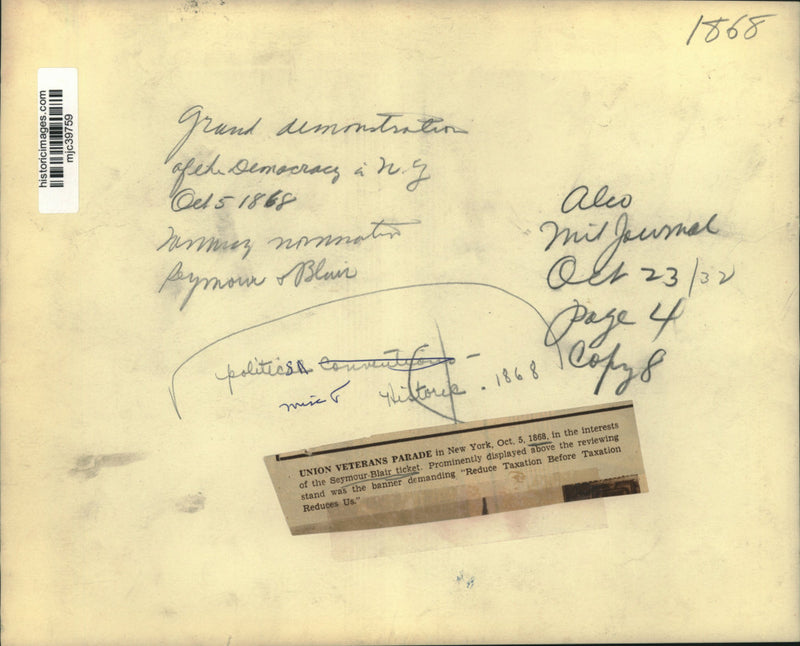 1868
historicimages.com
mjc39759
Grand demonstration
of the Democracy in N.Y
Oct 5 1868
nomination
Seymour & Blair
Also
Mil Journal
Oct 23/32
page 4
Copy 8
Politics Conventions -
misc
Historic - 1868
UNION VETERANS PARADE in New York, Oct. 5, 1868, in the interests
of the Seymour-Blair ticket. Prominently displayed above the reviewing
stand was the banner demanding "Reduce Taxation Before Taxation
Reduces Us."